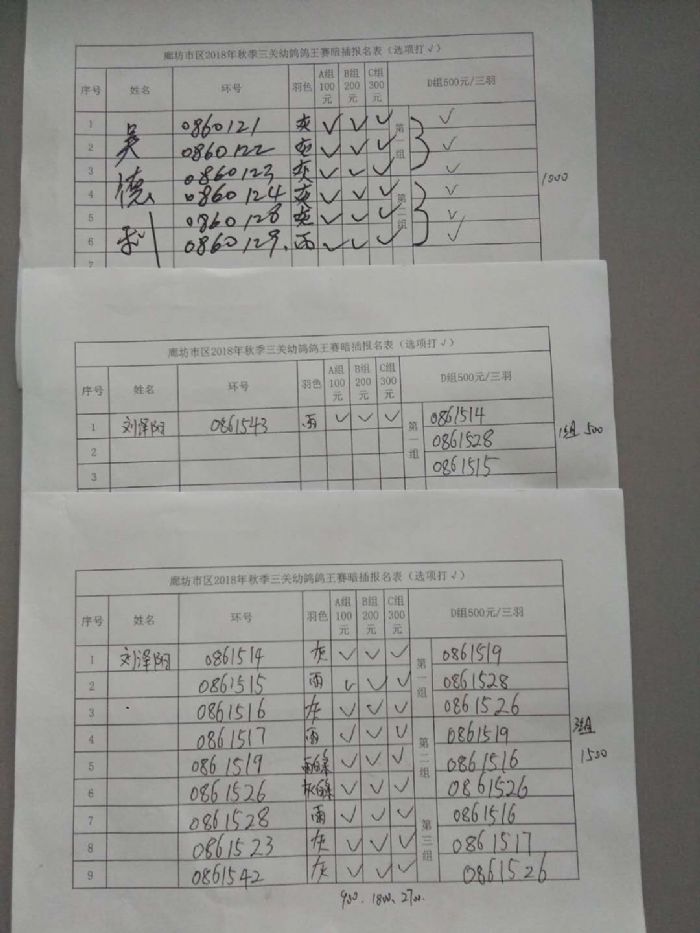 廊坊市区2018年秋季三关幼鸽鸽王赛暗插报名表（选项打√）
序号 姓名 环号 羽色 A组100元 B组200元 C组300元 D组500元/三羽
1 吴 0860121 灰 √ √ √ 第一组 √
2 0860122 灰 √ √ √ √
3 德 0860123 灰 √ √ √ √
4 0860124 灰 √ √ √ 第二组 √
5 0860128 灰 √ √ √ √
6 利 0860129 雨 √ √ √ √
7
1000
廊坊市区2018年秋季三关幼鸽鸽王赛暗插报名表（选项打√）
序号 姓名 环号 羽色 A组100元 B组200元 C组300元 D组500元/三羽
1 刘泽阳 0861543 雨 √ √ √ 第一组 0861514
2 0861528
3 0861515
1组 500
廊坊市区2018年秋季三关幼鸽鸽王赛暗插报名表（选项打√）
序号 姓名 环号 羽色 A组100元 B组200元 C组300元 D组500元/三羽
1 刘泽阳 0861514 灰 √ √ √ 第一组 0861519
2 0861515 雨 √ √ √ 0861528
3 0861516 灰 √ √ √ 0861526
4 0861517 雨 √ √ √ 第二组 0861519
5 0861519 雨白条 √ √ √ 0861516
6 0861526 灰白条 √ √ √ 0861526
7 0861528 雨 √ √ √ 第三组 0861516
8 0861523 灰 √ √ √ 0861517
9 0861542 灰 √ √ √ 0861526
3组
1500
900. 1800. 2700.